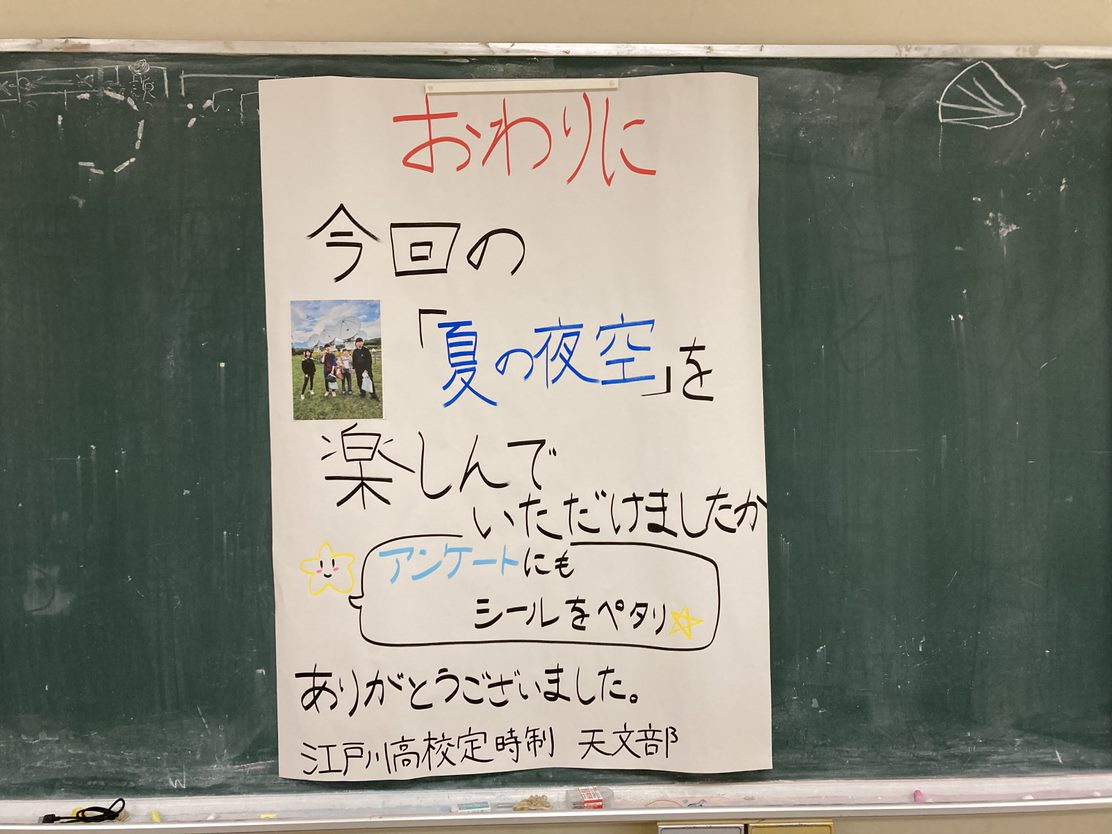 おわりに
今回の
「夏の夜空」を
楽しんで
いただけましたか
アンケートにも
シールをペタリ
ありがとうございました。
江戸川高校定時制 天文部